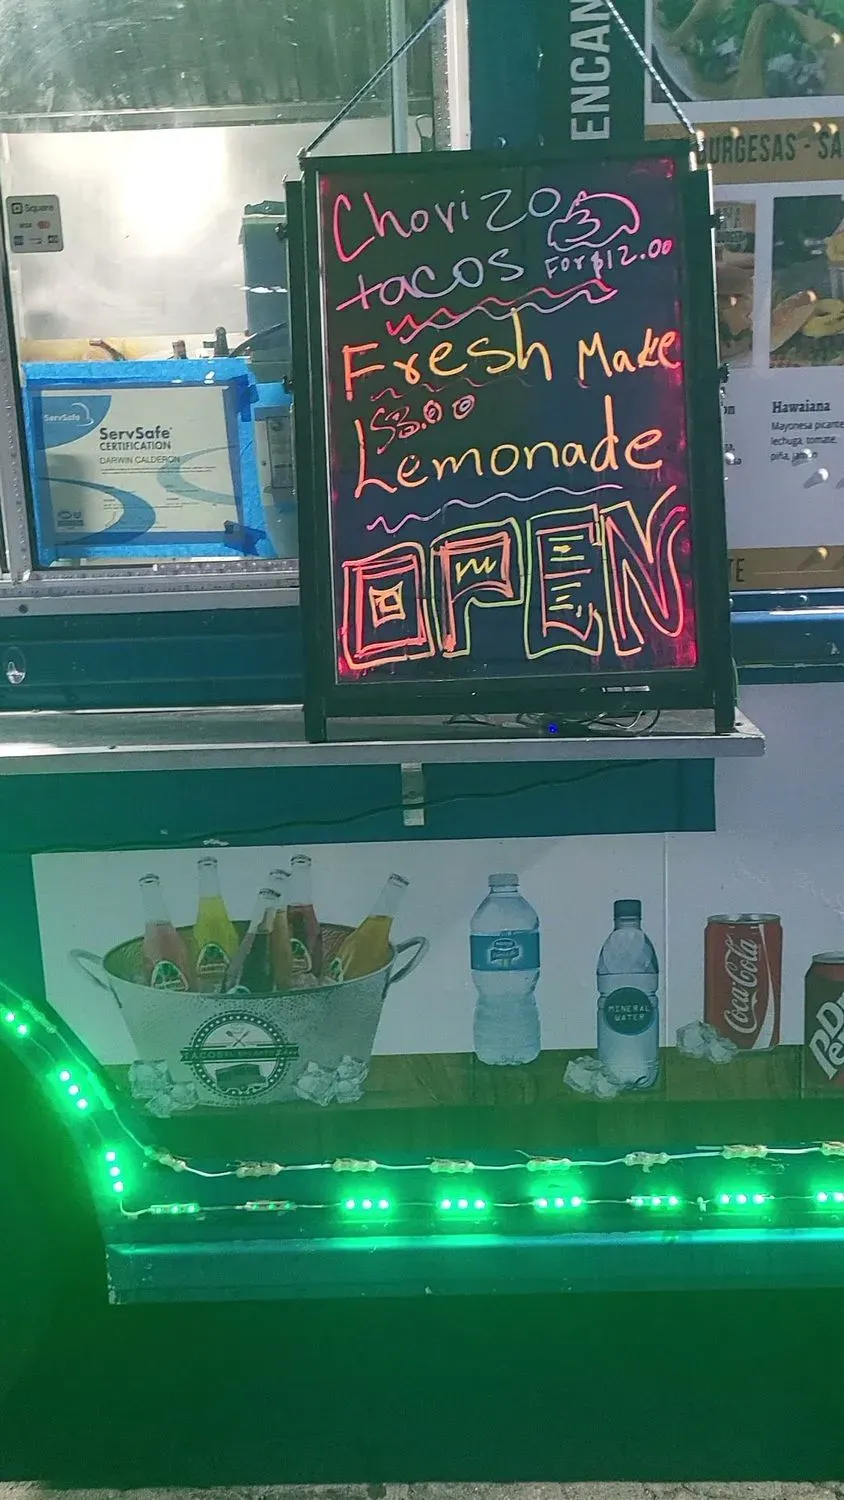 ENCAN
BURGESAS - SA
Square
VISA
Chorizo
tacos 3
FOR $12.00
Fresh Make
$3.00
Lemonade
OPEN
ServSafe
ServSafe®
CERTIFICATION
DARWIN CALDERON
Hawaiana
Mayonesa picante
lechuga, tomate,
piña, jamon
TE
TACOS
MINERAL
WATER
Coca-Cola
DR
Pe